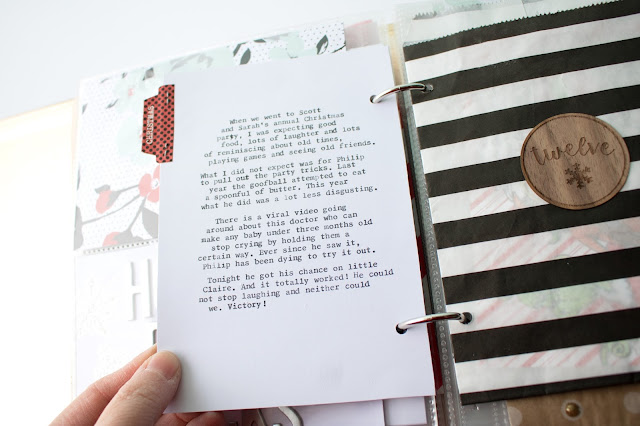 CHRISTMAS
When we went to Scott
and Sarah's annual Christmas
party. I was expecting good
food, lots of laughter and lots
of reminiscing about old times,
playing games and seeing old friends.
What I did not expect was for Philip
to pull out the party tricks. Last
year the goofball attempted to eat
a spoonful of butter. This year
what he did was a lot less disgusting.
There is a viral video going
around about this doctor who can
make any baby under three months old
stop crying by holding them a
certain way. Ever since he saw it,
Philip has been dying to try it out.
Tonight he got his chance on little
Claire. And it totally worked! He could
not stop laughing and neither could
we. Victory!
twelve